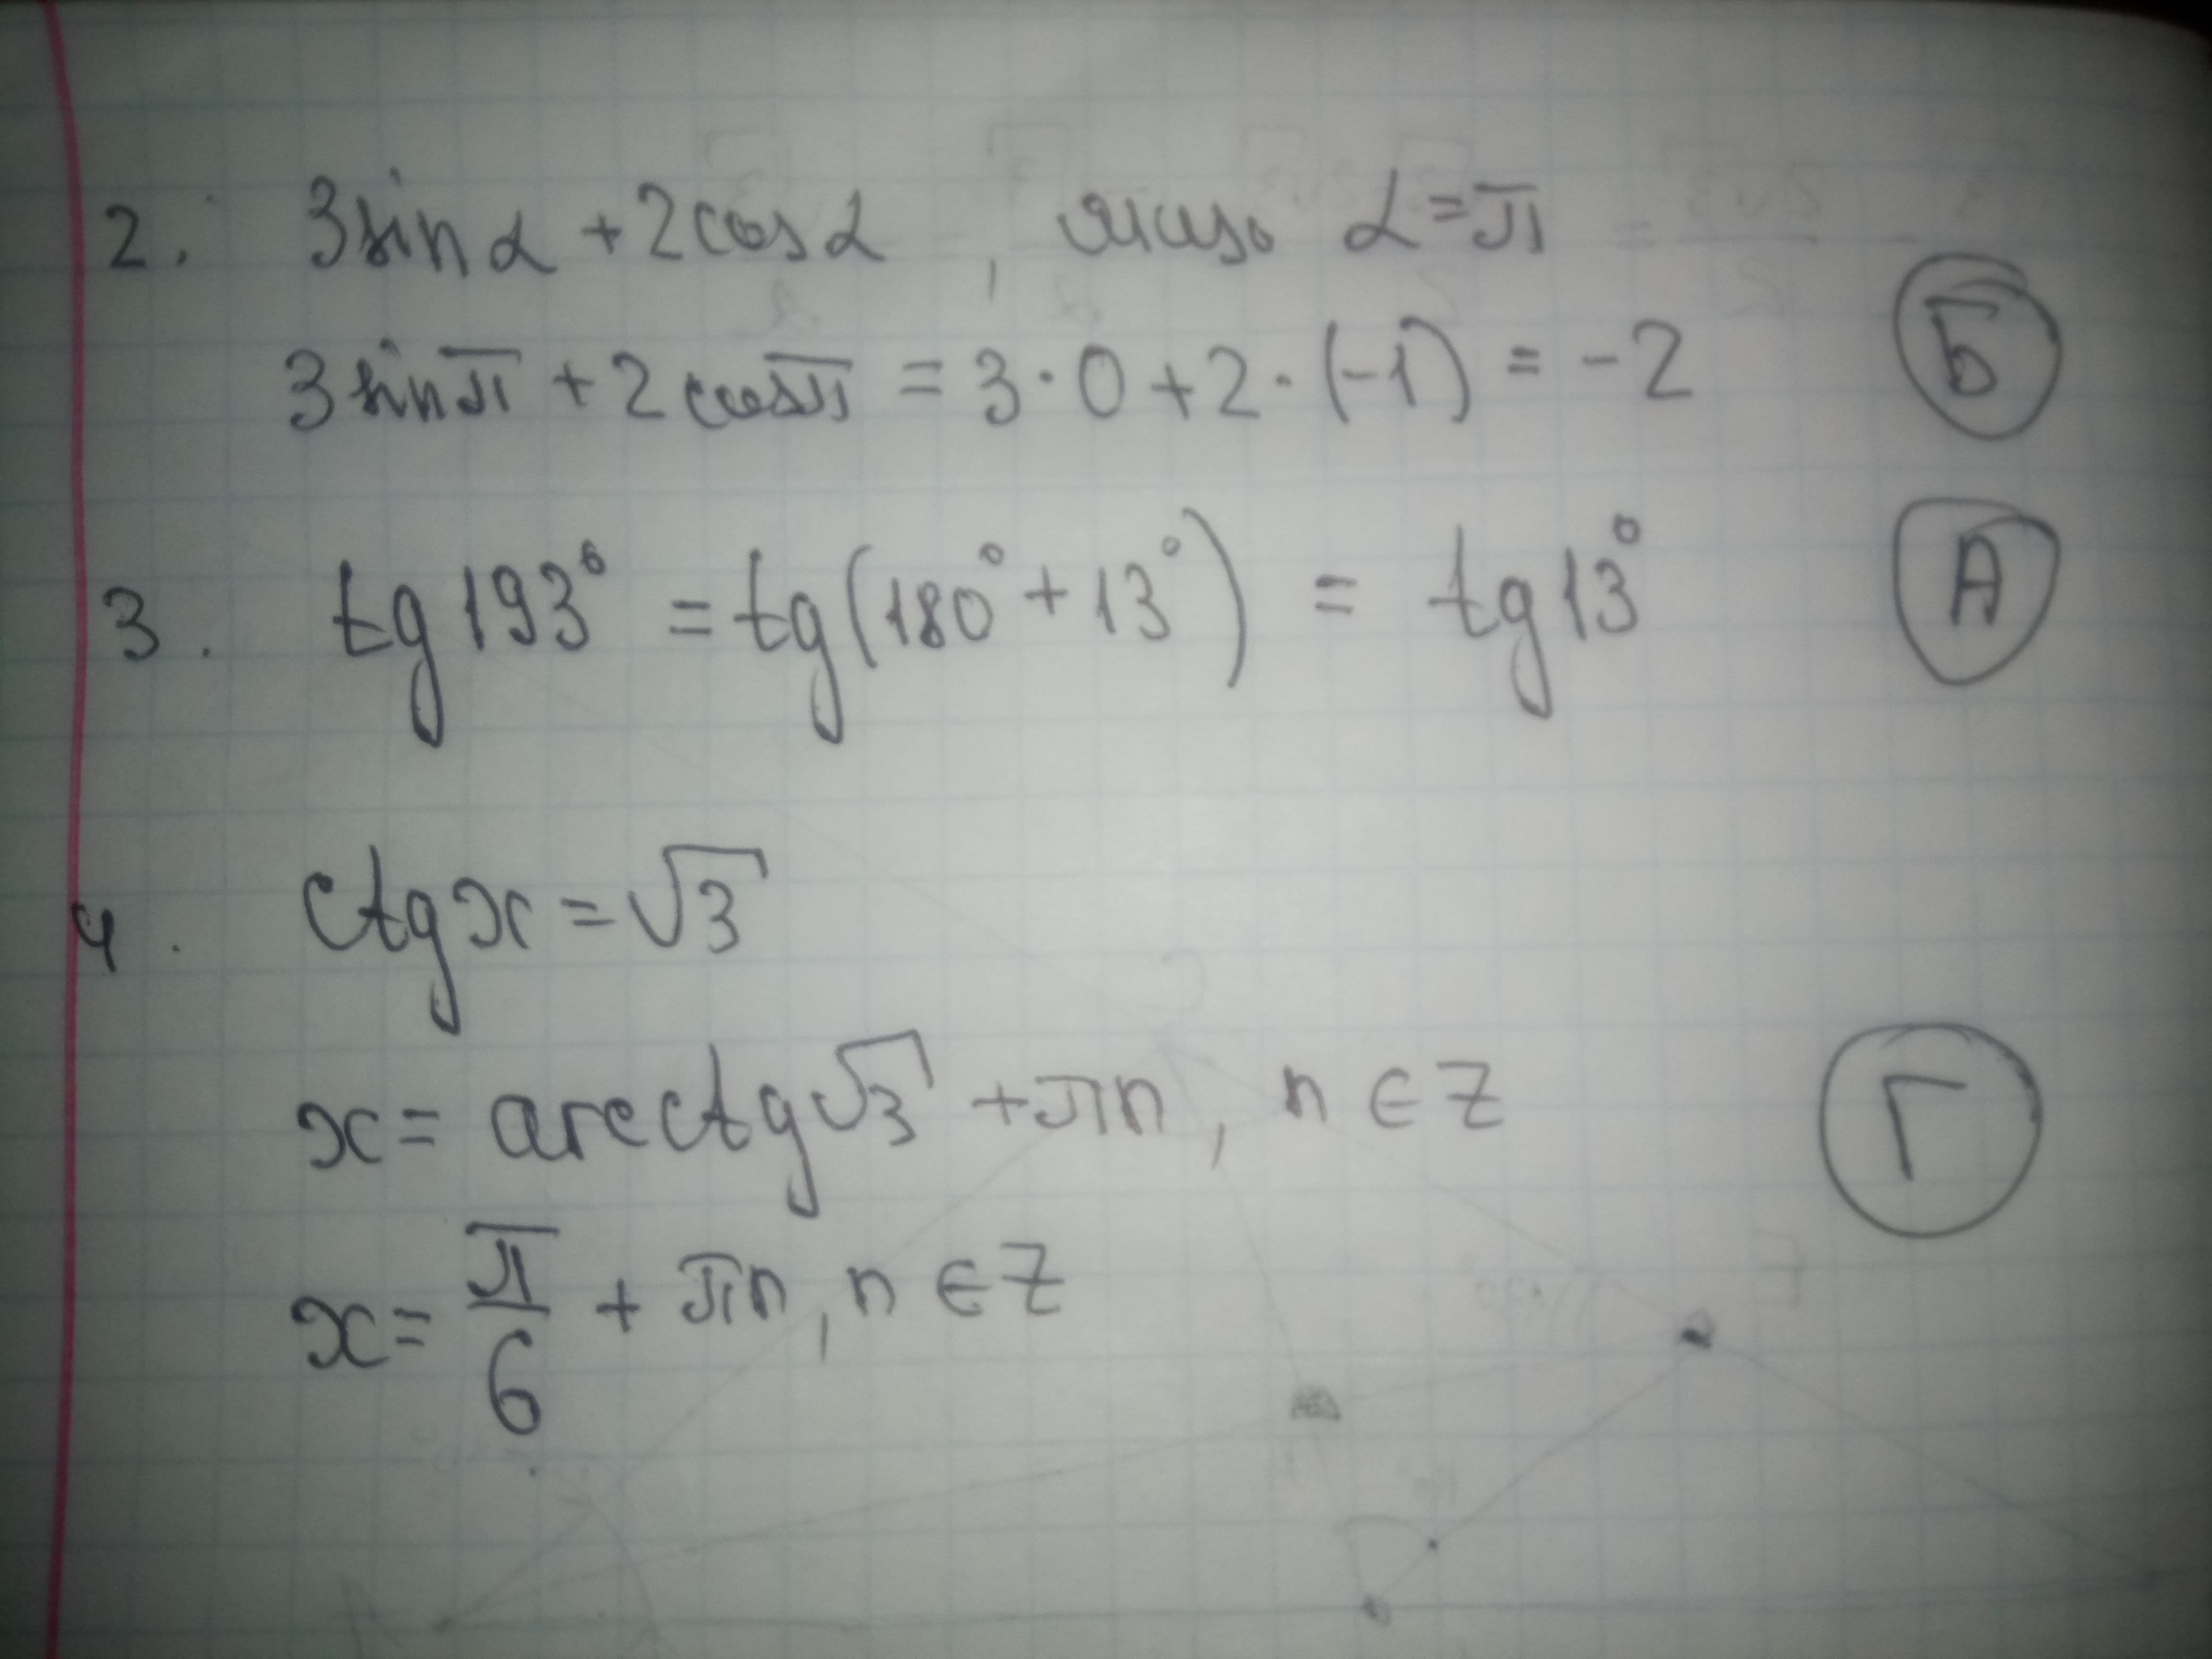 2. 3sinα + 2cosα , якщо α = π
3sinπ + 2cosπ = 3·0 + 2·(-1) = -2 Б
3. tg193° = tg(180° + 13°) = tg13° А
4. ctgx = √3
x = arcctg√3 + πn, n ∈ Z Г
x = π/6 + πn, n ∈ Z